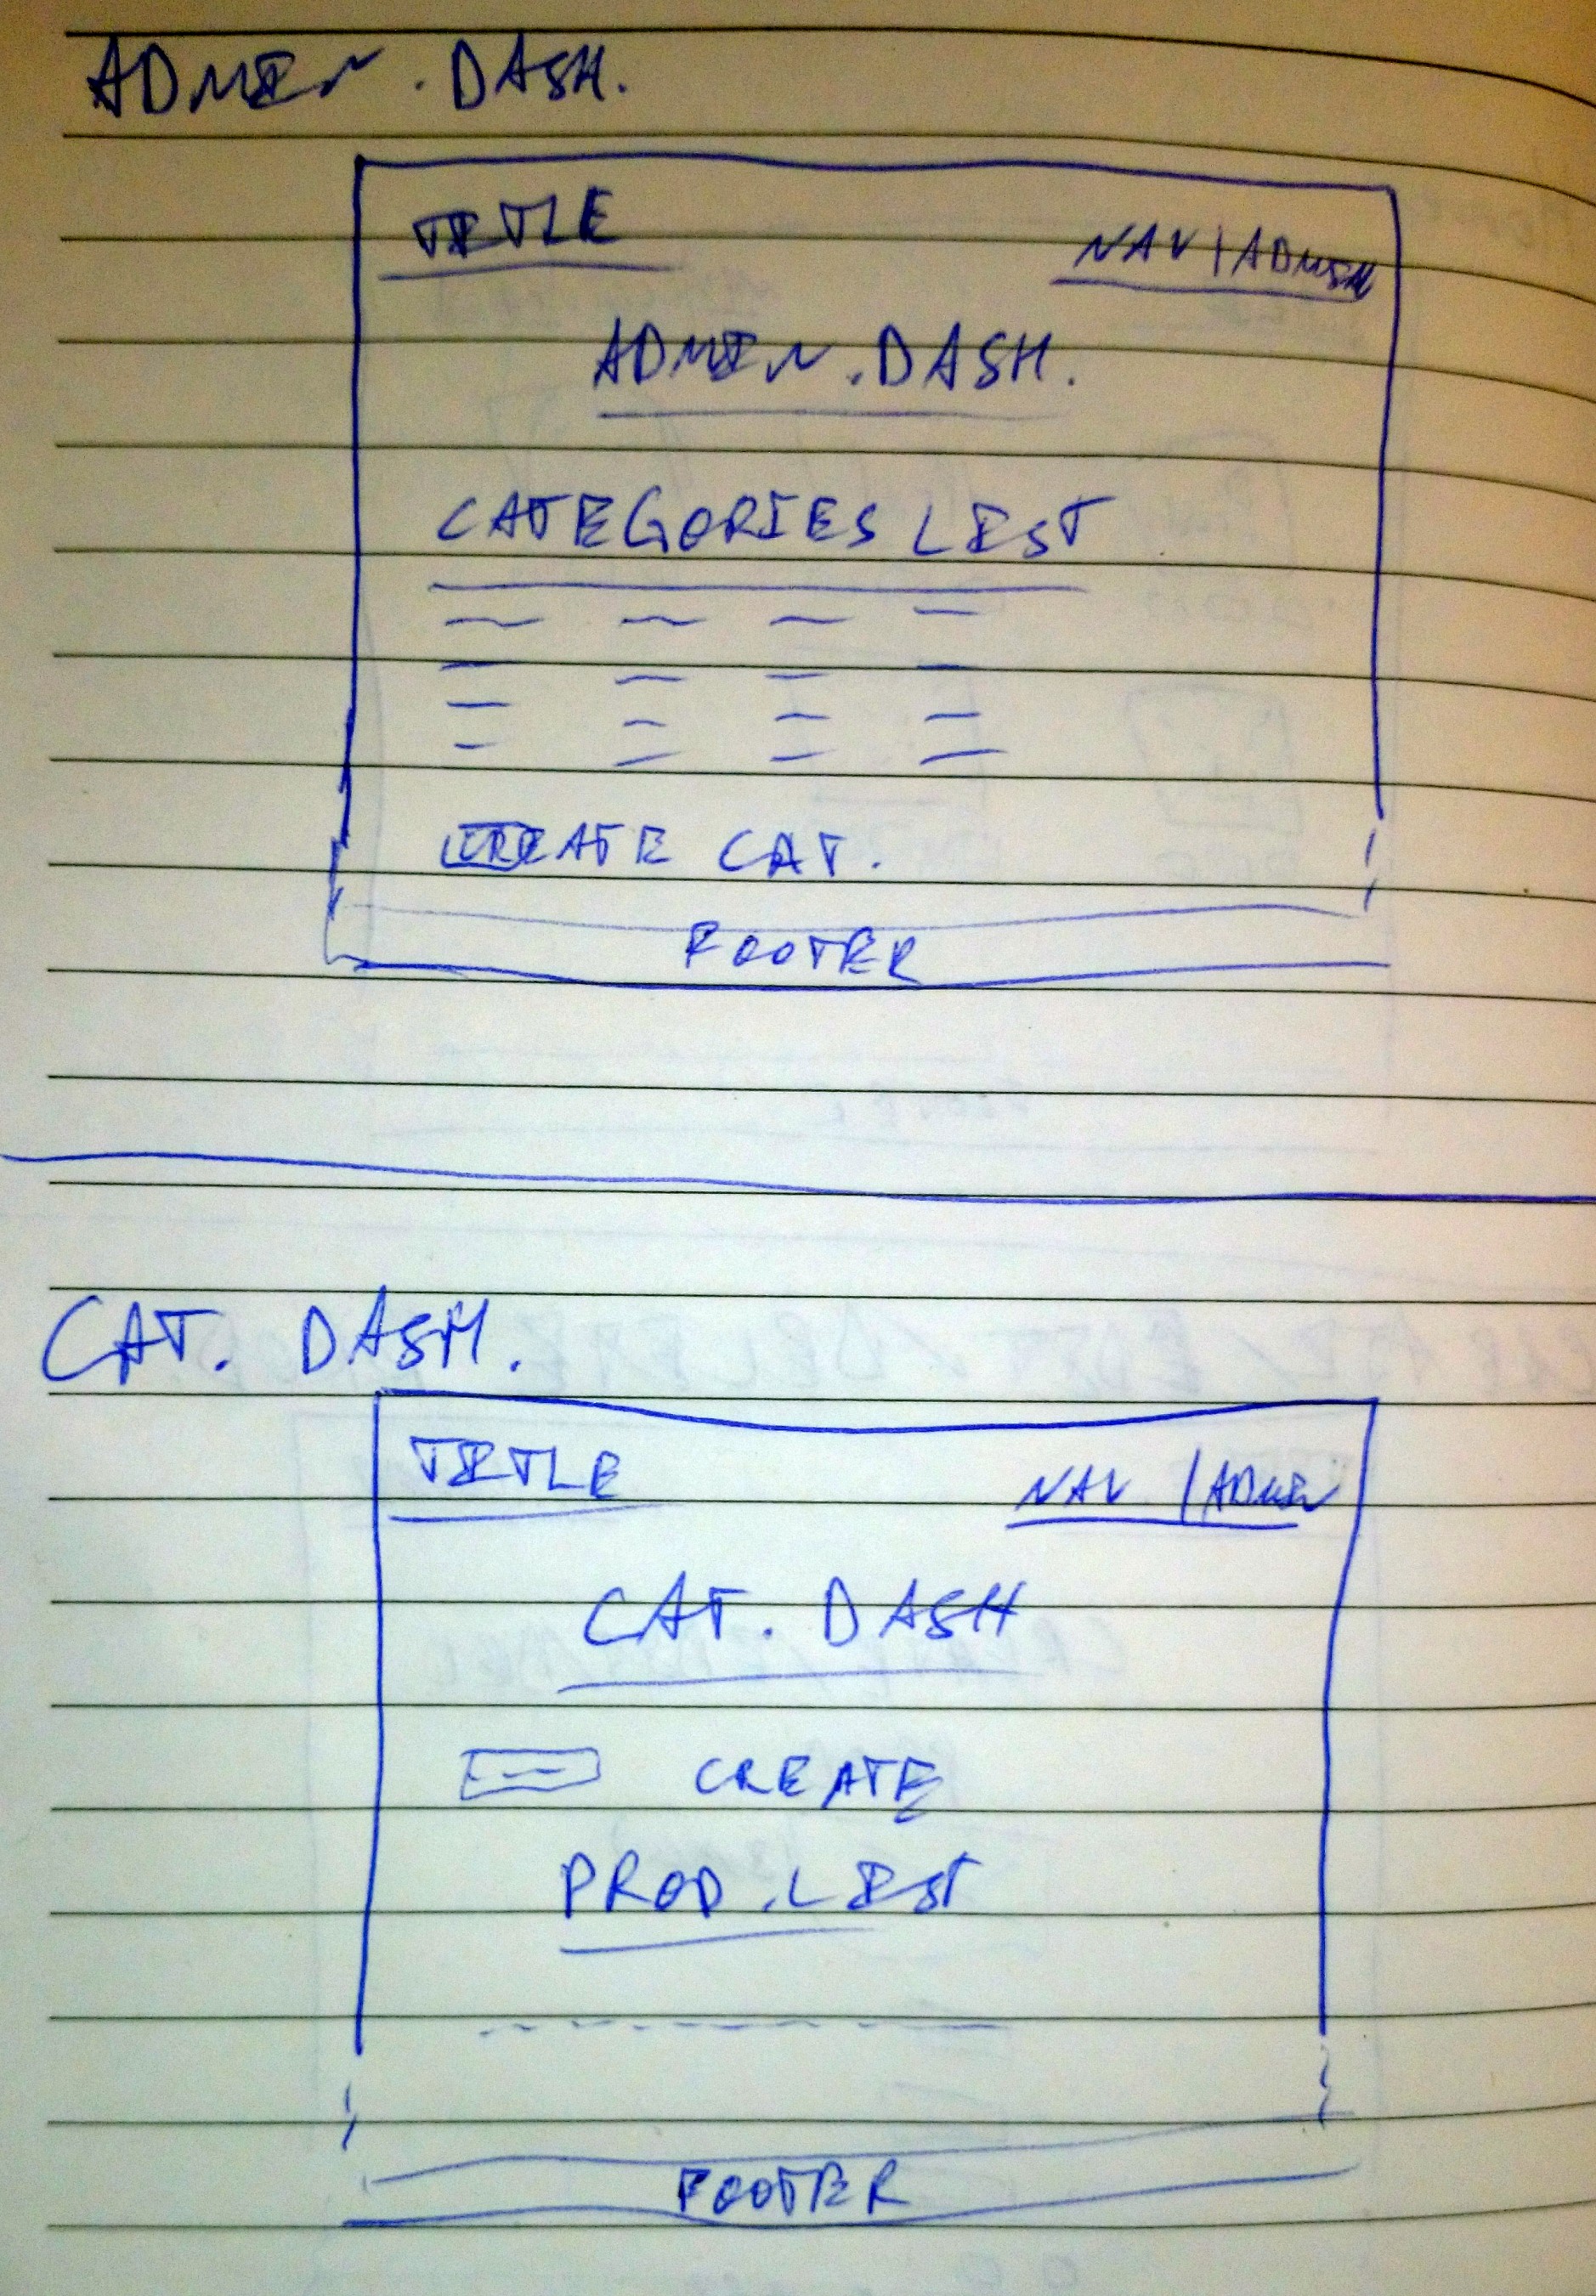 ADMIN. DASH.
TITLE
NAV | ADMIN
ADMIN. DASH.
CATEGORIES LIST
CREATE CAT.
FOOTER
CAT. DASH.
TITLE
NAV | ADMIN
CAT. DASH
CREATE
PROD. LIST
FOOTER